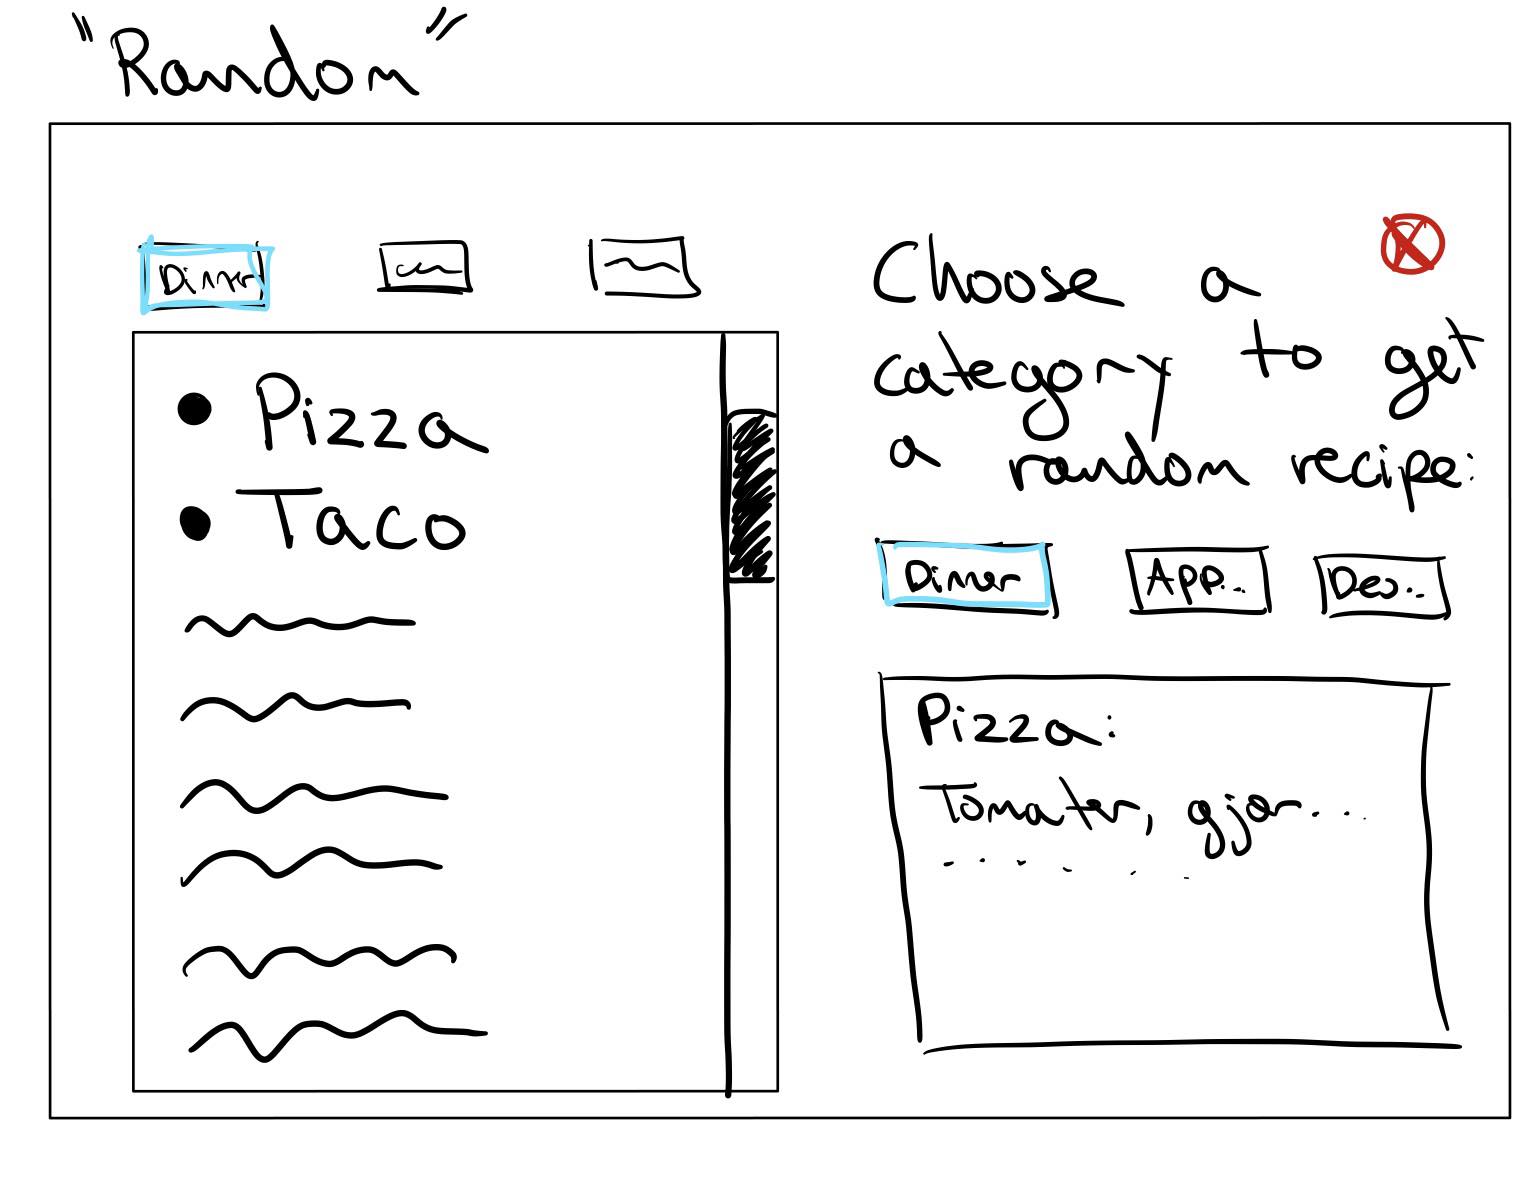 "Random"
Dinner
• Pizza
• Taco
Choose a
category to get
a random recipe:
Dinner
App..
Des...
Pizza:
Tomater, gjær...
......